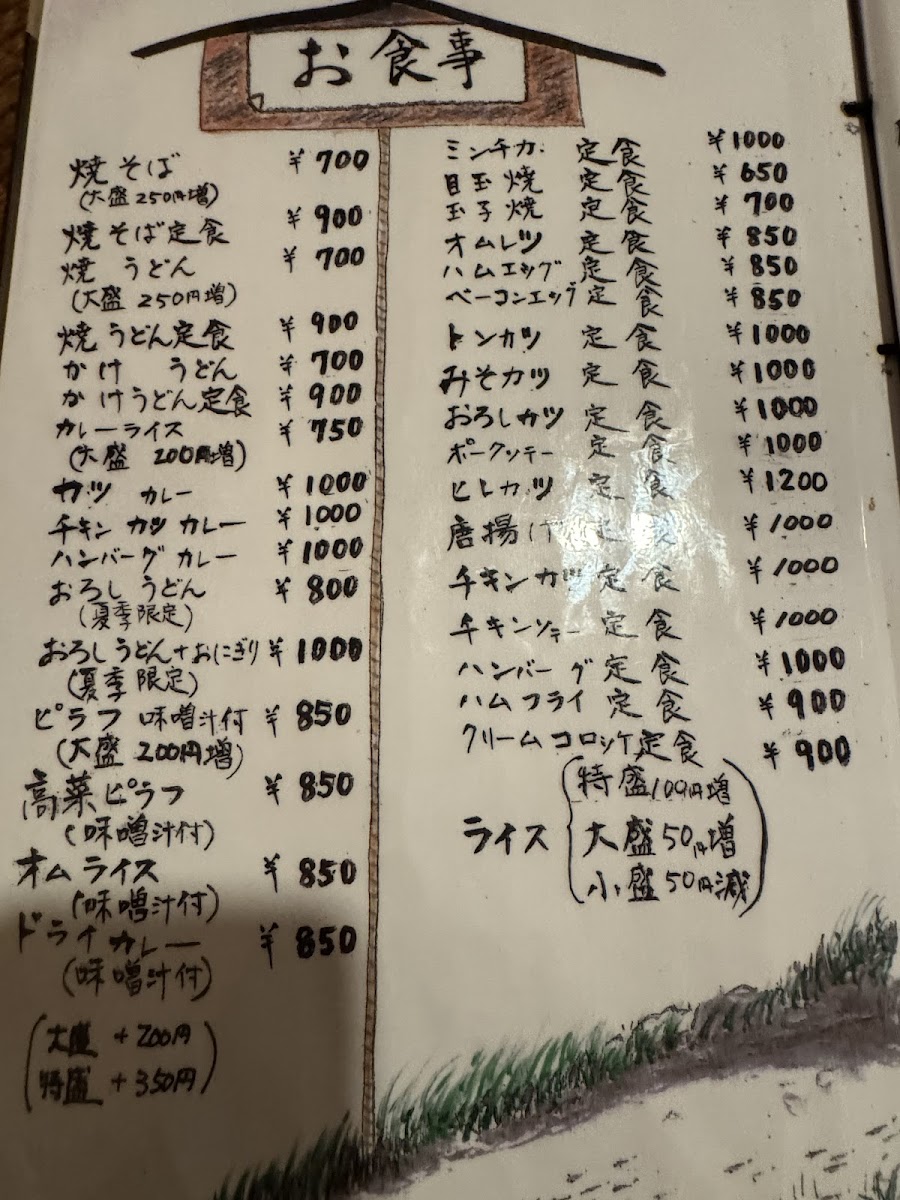 お食事
焼そば ¥700
(大盛 250円増)
焼そば定食 ¥900
焼うどん ¥700
(大盛 250円増)
焼うどん定食 ¥900
かけ うどん ¥700
かけうどん定食 ¥900
カレーライス ¥750
(大盛 200円増)
カツ カレー ¥1000
チキン カツ カレー ¥1000
ハンバーグ カレー ¥1000
おろし うどん ¥800
(夏季限定)
おろしうどん+おにぎり ¥1000
(夏季限定)
ピラフ 味噌汁付 ¥850
(大盛 200円増)
高菜ピラフ ¥850
(味噌汁付)
オムライス ¥850
(味噌汁付)
ドライカレー ¥850
(味噌汁付)
(大盛 +200円
特盛 +350円)
ミンチカ. 定食 ¥1000
目玉焼 定食 ¥650
玉子焼 定食 ¥700
オムレツ 定食 ¥850
ハムエッグ 定食 ¥850
ベーコンエッグ 定食 ¥850
トンカツ 定食 ¥1000
みそカツ 定食 ¥1000
おろしカツ 定食 ¥1000
ポークソテー 定食 ¥1000
ヒレカツ 定食 ¥1200
唐揚げ 定食 ¥1000
チキンカツ 定食 ¥1000
チキンソテー 定食 ¥1000
ハンバーグ 定食 ¥1000
ハムフライ 定食 ¥900
クリームコロッケ定食 ¥900
ライス (特盛100円増
大盛50円増
小盛50円減)